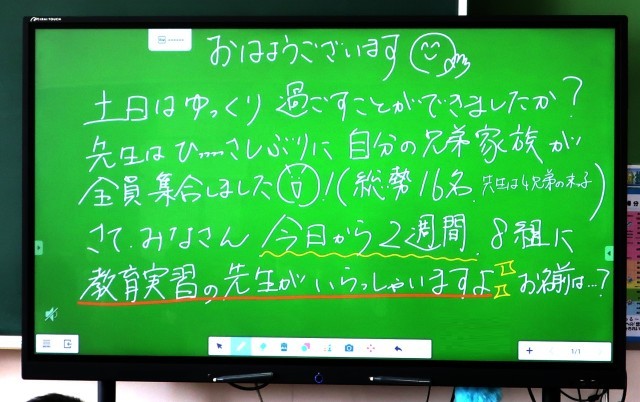 おはようございます
土日はゆっくり過ごすことができましたか?
先生はひーさしぶりに自分の兄弟家族が
全員集合しました!(総勢16名.先生は4兄弟の末っ子)
さて、みなさん今日から2週間.8組に
教育実習の先生がいらっしゃいますよ!! お名前は…?
1/1